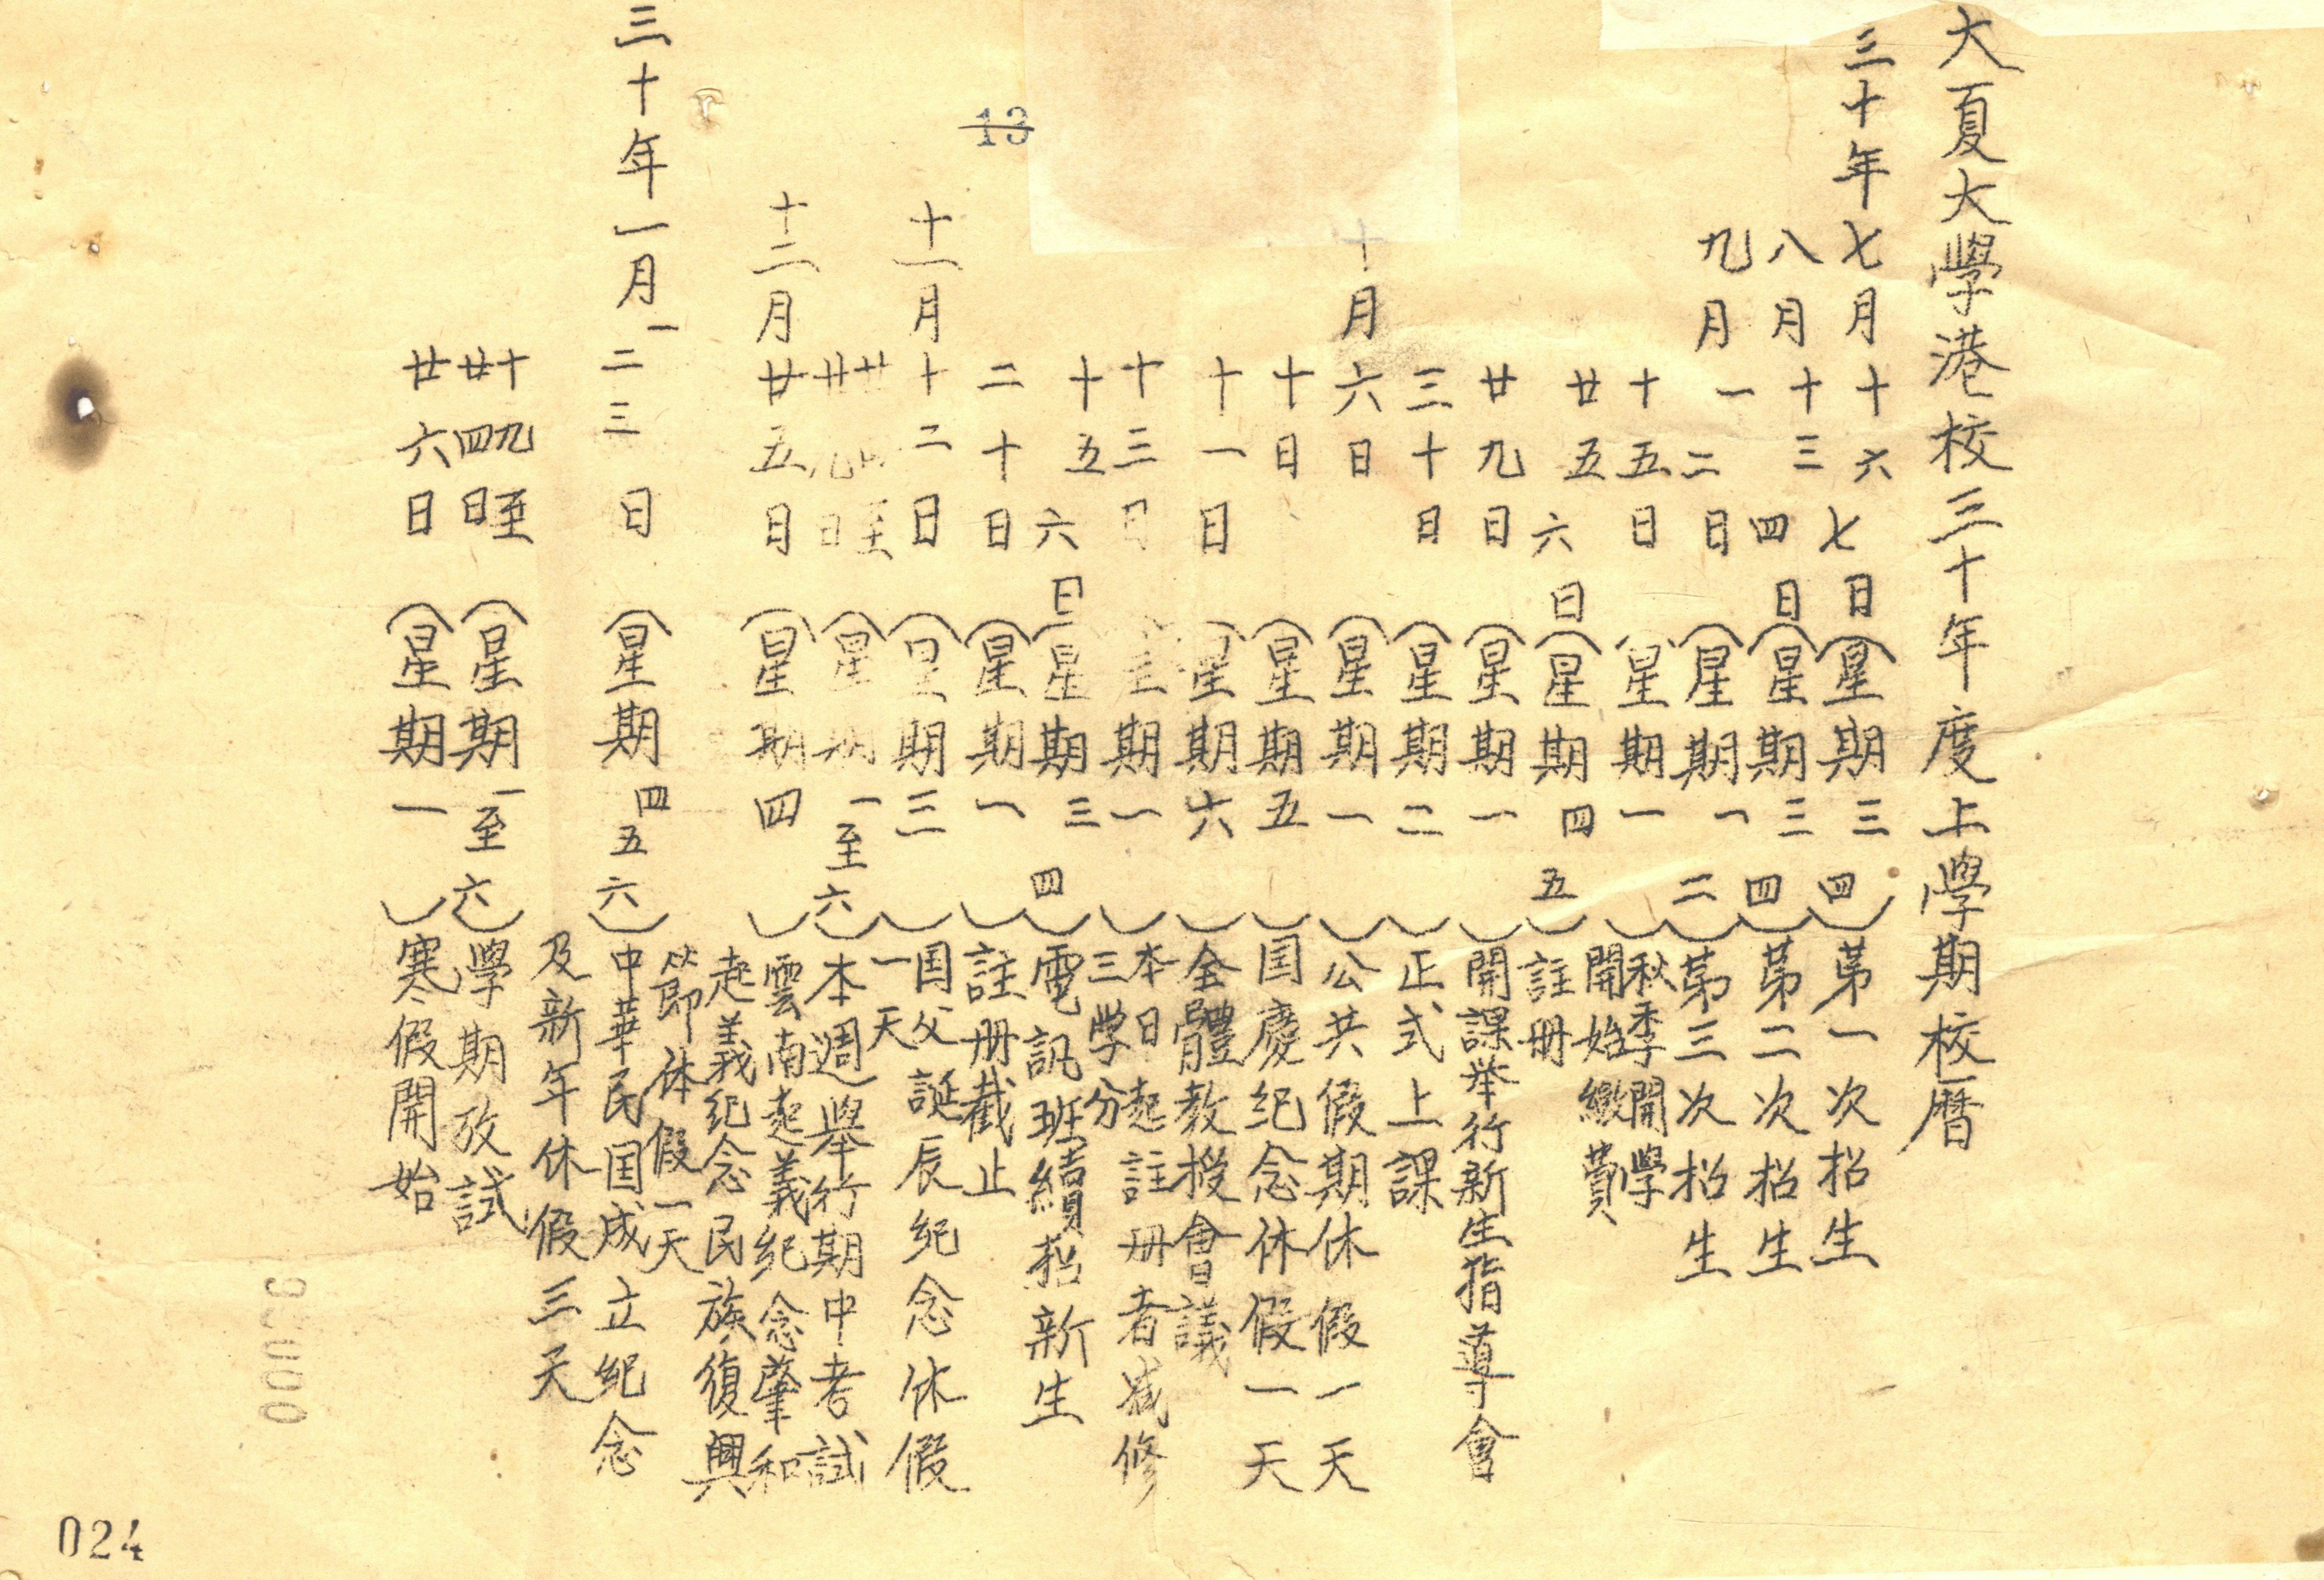 大夏大學港校三十年度上學期校曆
三十年七月十六七日(星期三四)第一次招生
八月十三四日(星期三四)第二次招生
九月一二日(星期一二)第三次招生
十五日(星期一)秋季開學
開始繳費
廿五六日(星期四五)註冊
廿九日(星期一)開課举行新生指導會
三十日(星期二)正式上課
十月六日(星期一)公共假期休假一天
十日(星期五)国慶紀念休假一天
十一日(星期六)全體教授會議
十三日(星期一)本日起註冊者减修
三学分
十五六日(星期三四)電訊班續招新生
二十日(星期一)註冊截止
十一月十二日(星期三)国父誕辰紀念休假
一天
廿四至
廿九日(星期一至六)本週舉行期中考試
十二月廿五日(星期四)雲南起義紀念肇和
起義紀念民族復興
節休假一天
三十年一月一二三日(星期四五六)中華民国成立紀念
及新年休假三天
十九至
廿四日(星期一至六)學期攷試
廿六日(星期一)寒假開始
13
024